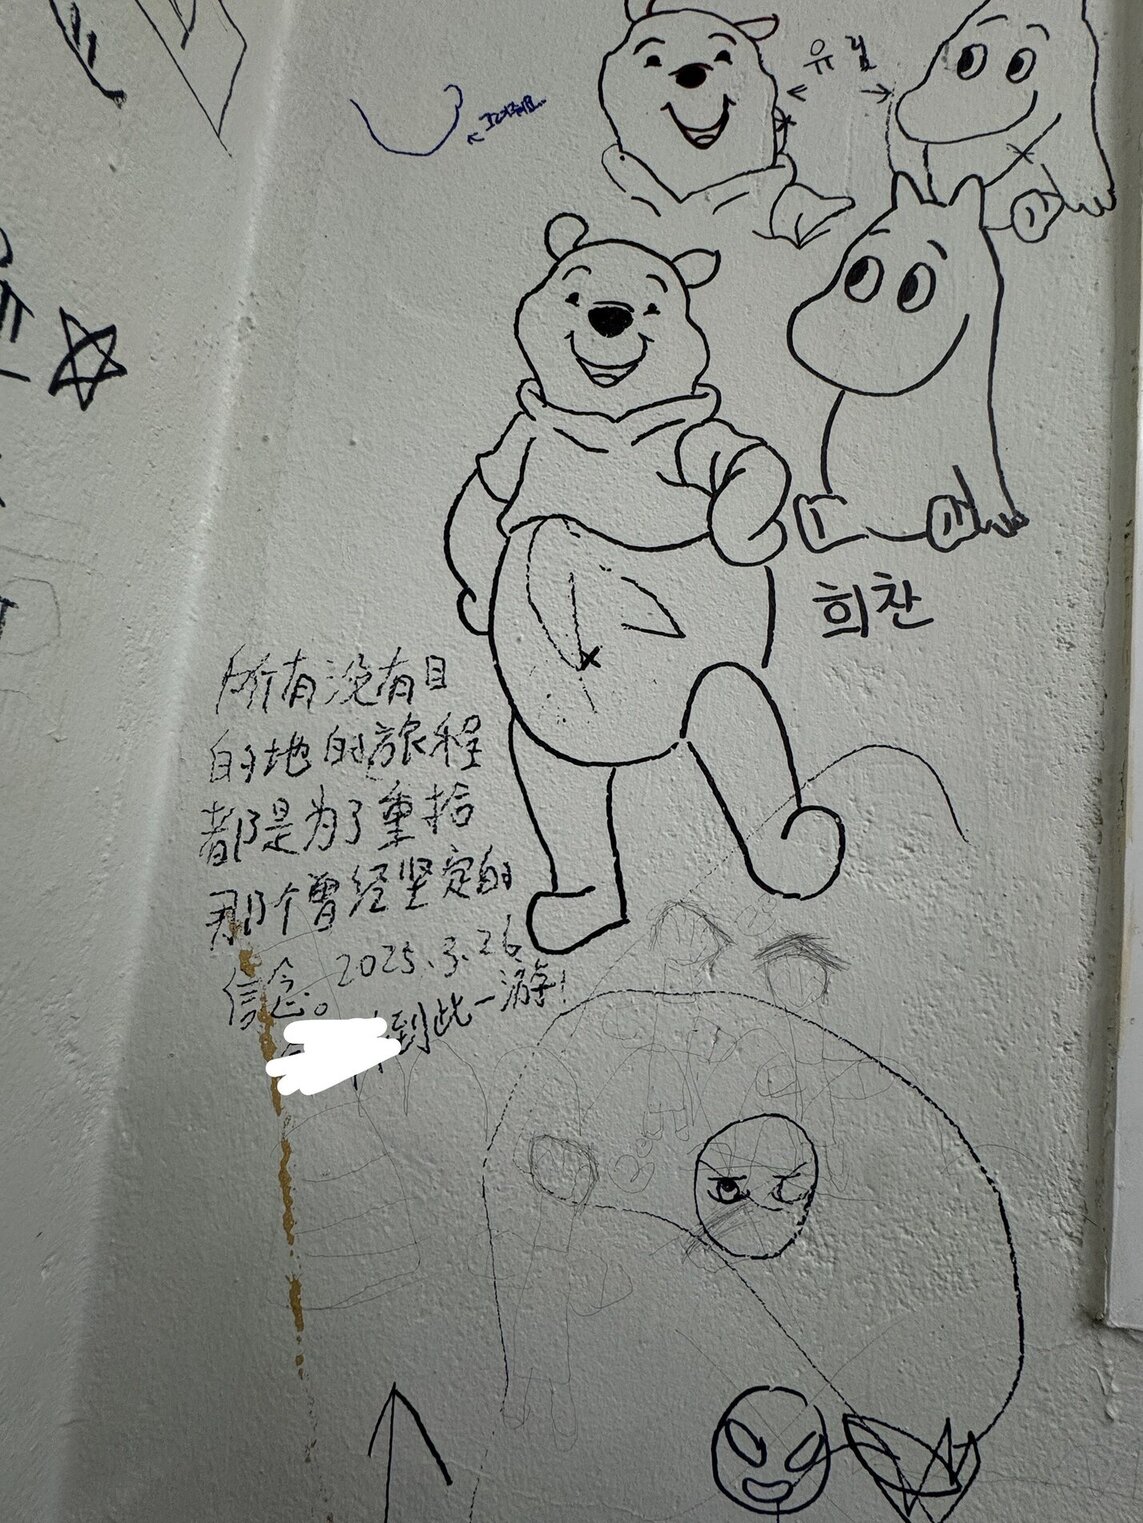 유질
희찬
所有没有目
的地的旅程
都是为了重拾
那个曾经坚定的
信念。2025.3.26
到此一游!